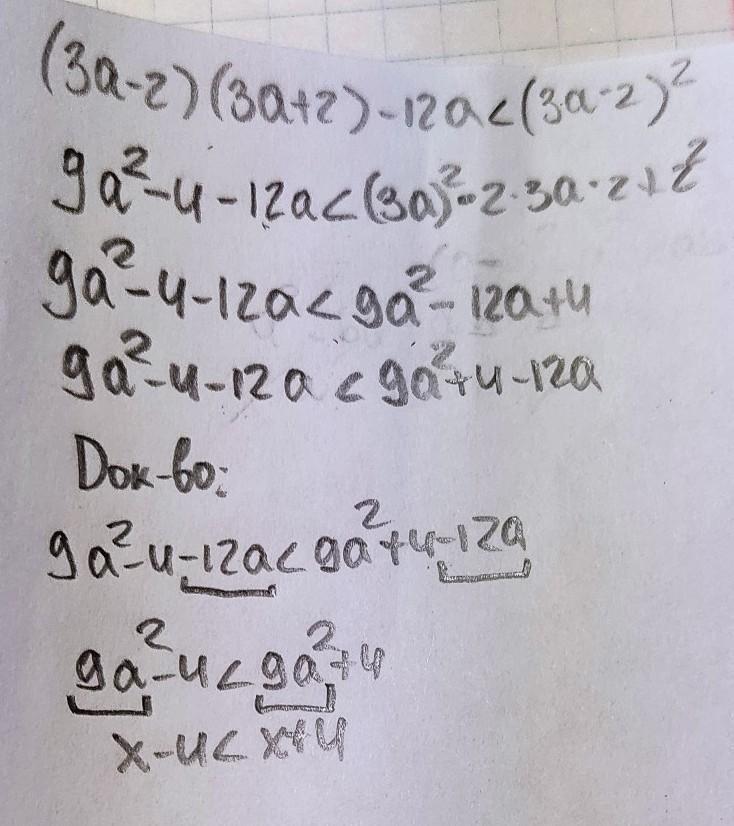 (3a-2)(3a+2)-12a<(3a-2)²
9a²-4-12a<(3a)²-2·3a·2+2²
9a²-4-12a<9a²-12a+4
9a²-4-12a<9a²+4-12a
Док-во:
9a²-4-12a<9a²+4-12a
9a²-4<9a²+4
x-4<x+4